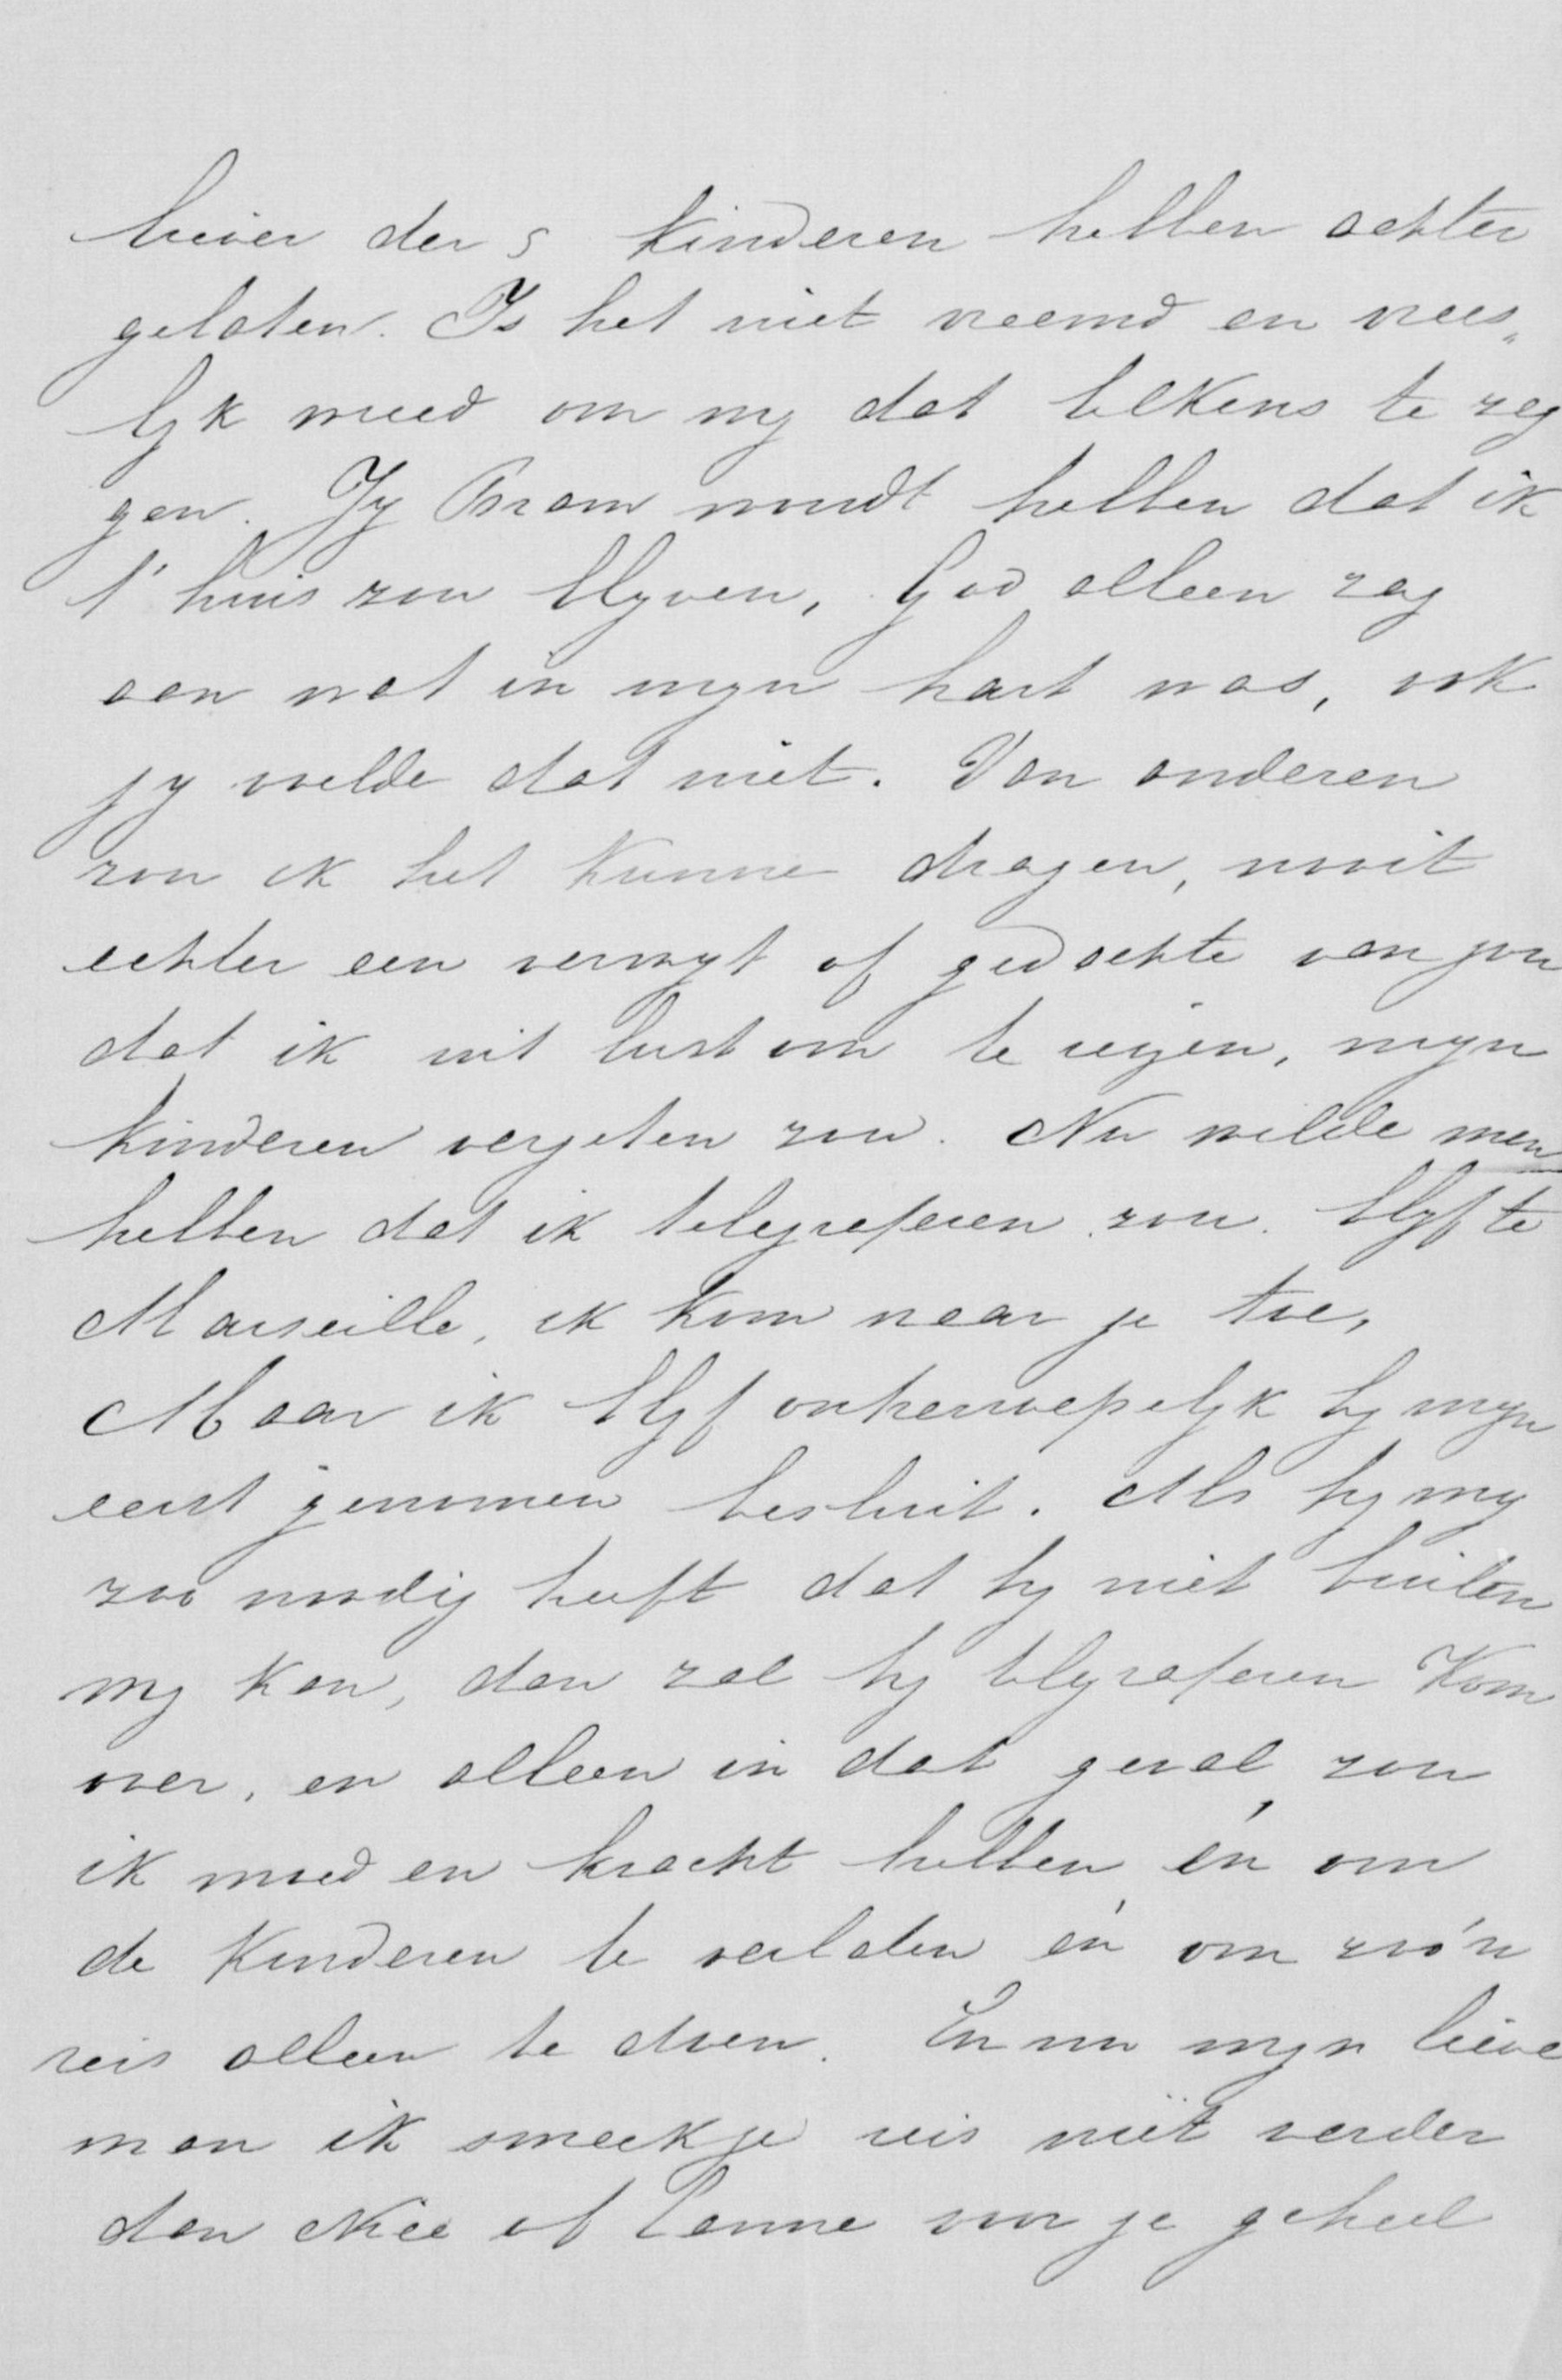 liever der 5 kinderen hebben achter
gelaten. Is het niet vreemd en vrees„
lyk wreed om my dat telkens te zeg
gen. Jy Bram woudt hebben dat ik
t'huis zou blyven, God alleen zag
aan wat in myn hart was, ook
jy wilde dat niet. Van anderen
zou ik het kunne dragen, nooit
echter een verwyt of gedachte van jou
dat ik uit lust om te reizen, myn
kinderen vergeten zou. Nu wilde men
hebben dat ik telegraferen zou. Blyf te
Marseille, ik kom naar je toe,
Maar ik blyf onherroepelyk by myn
eerst genomen besluit. Als hy my
zoo noodig heeft dat hy niet buiten
my kan, dan zal hy telegraferen Kom
over, en alleen in dat geval zou
ik moed en kracht hebben én om
de Kinderen te verlaten én om zoo'n
reis alleen te doen. En nu myn lieve
man ik smeek je reis niet verder
dan Nice of Canne voor je geheel